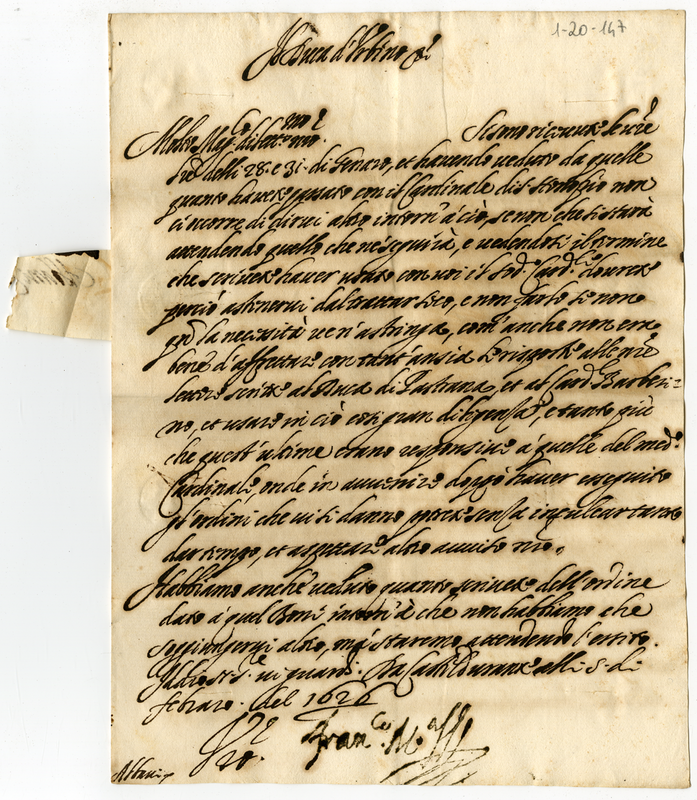 1-20-147
Il Duca d'Urbino &c
Molto Mag.co dilett.mo nro. Si sono ricevute le vre
due delli 28. e 31. di Genaro, et havendo veduto da quelle
quanto havete passato con il Cardinale di S. Honofrio non
ci occorre di dirvi altro intorn' a ciò, se non che si starà
attendendo quello che ne seguirà, e vedendosi il termine
che scrivete haver usato con voi il Sod.o Card.le dourete
perciò astenervi dal trattar seco, e non farlo se non
q.do la necessità ve n'astringa, com' anche non era
bene d'affettare con tant' ansia le risposte alle nre
lettere scritte al Duca di Pastrana, et al Card. Barberi=
no, et usare in ciò così gran diligenza, e tanto più
che quest' ultime erano responsive à quelle del med.o
Cardinale, onde in avvenire doppò haver esseguito
gl'ordini che vi si danno potrete senza inculcar tanto
dar tempo, et aspettare altro avviso nro.
Habbiamo anche veduto quanto scrivete dell' ordine
dato à quel Boni intorn' à che non habbiamo che
soggiungervi altro, mà staremo attendendo l'essito.
Iddio N.S.re vi guardi. Da Castel Durante alli 5. di
Febraro. del 1626
Fran.co M.a